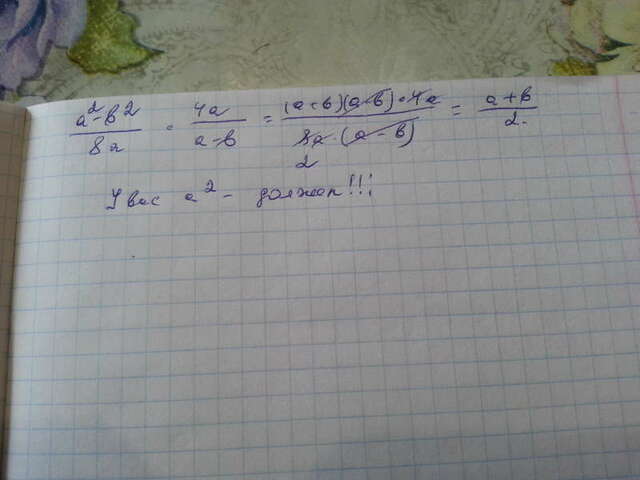 a²-в²/8a · 4a/a-в = (a+в)(a-в)·4a/8a·(a-в) = a+в/2.
2
У вас a² - должен!!!